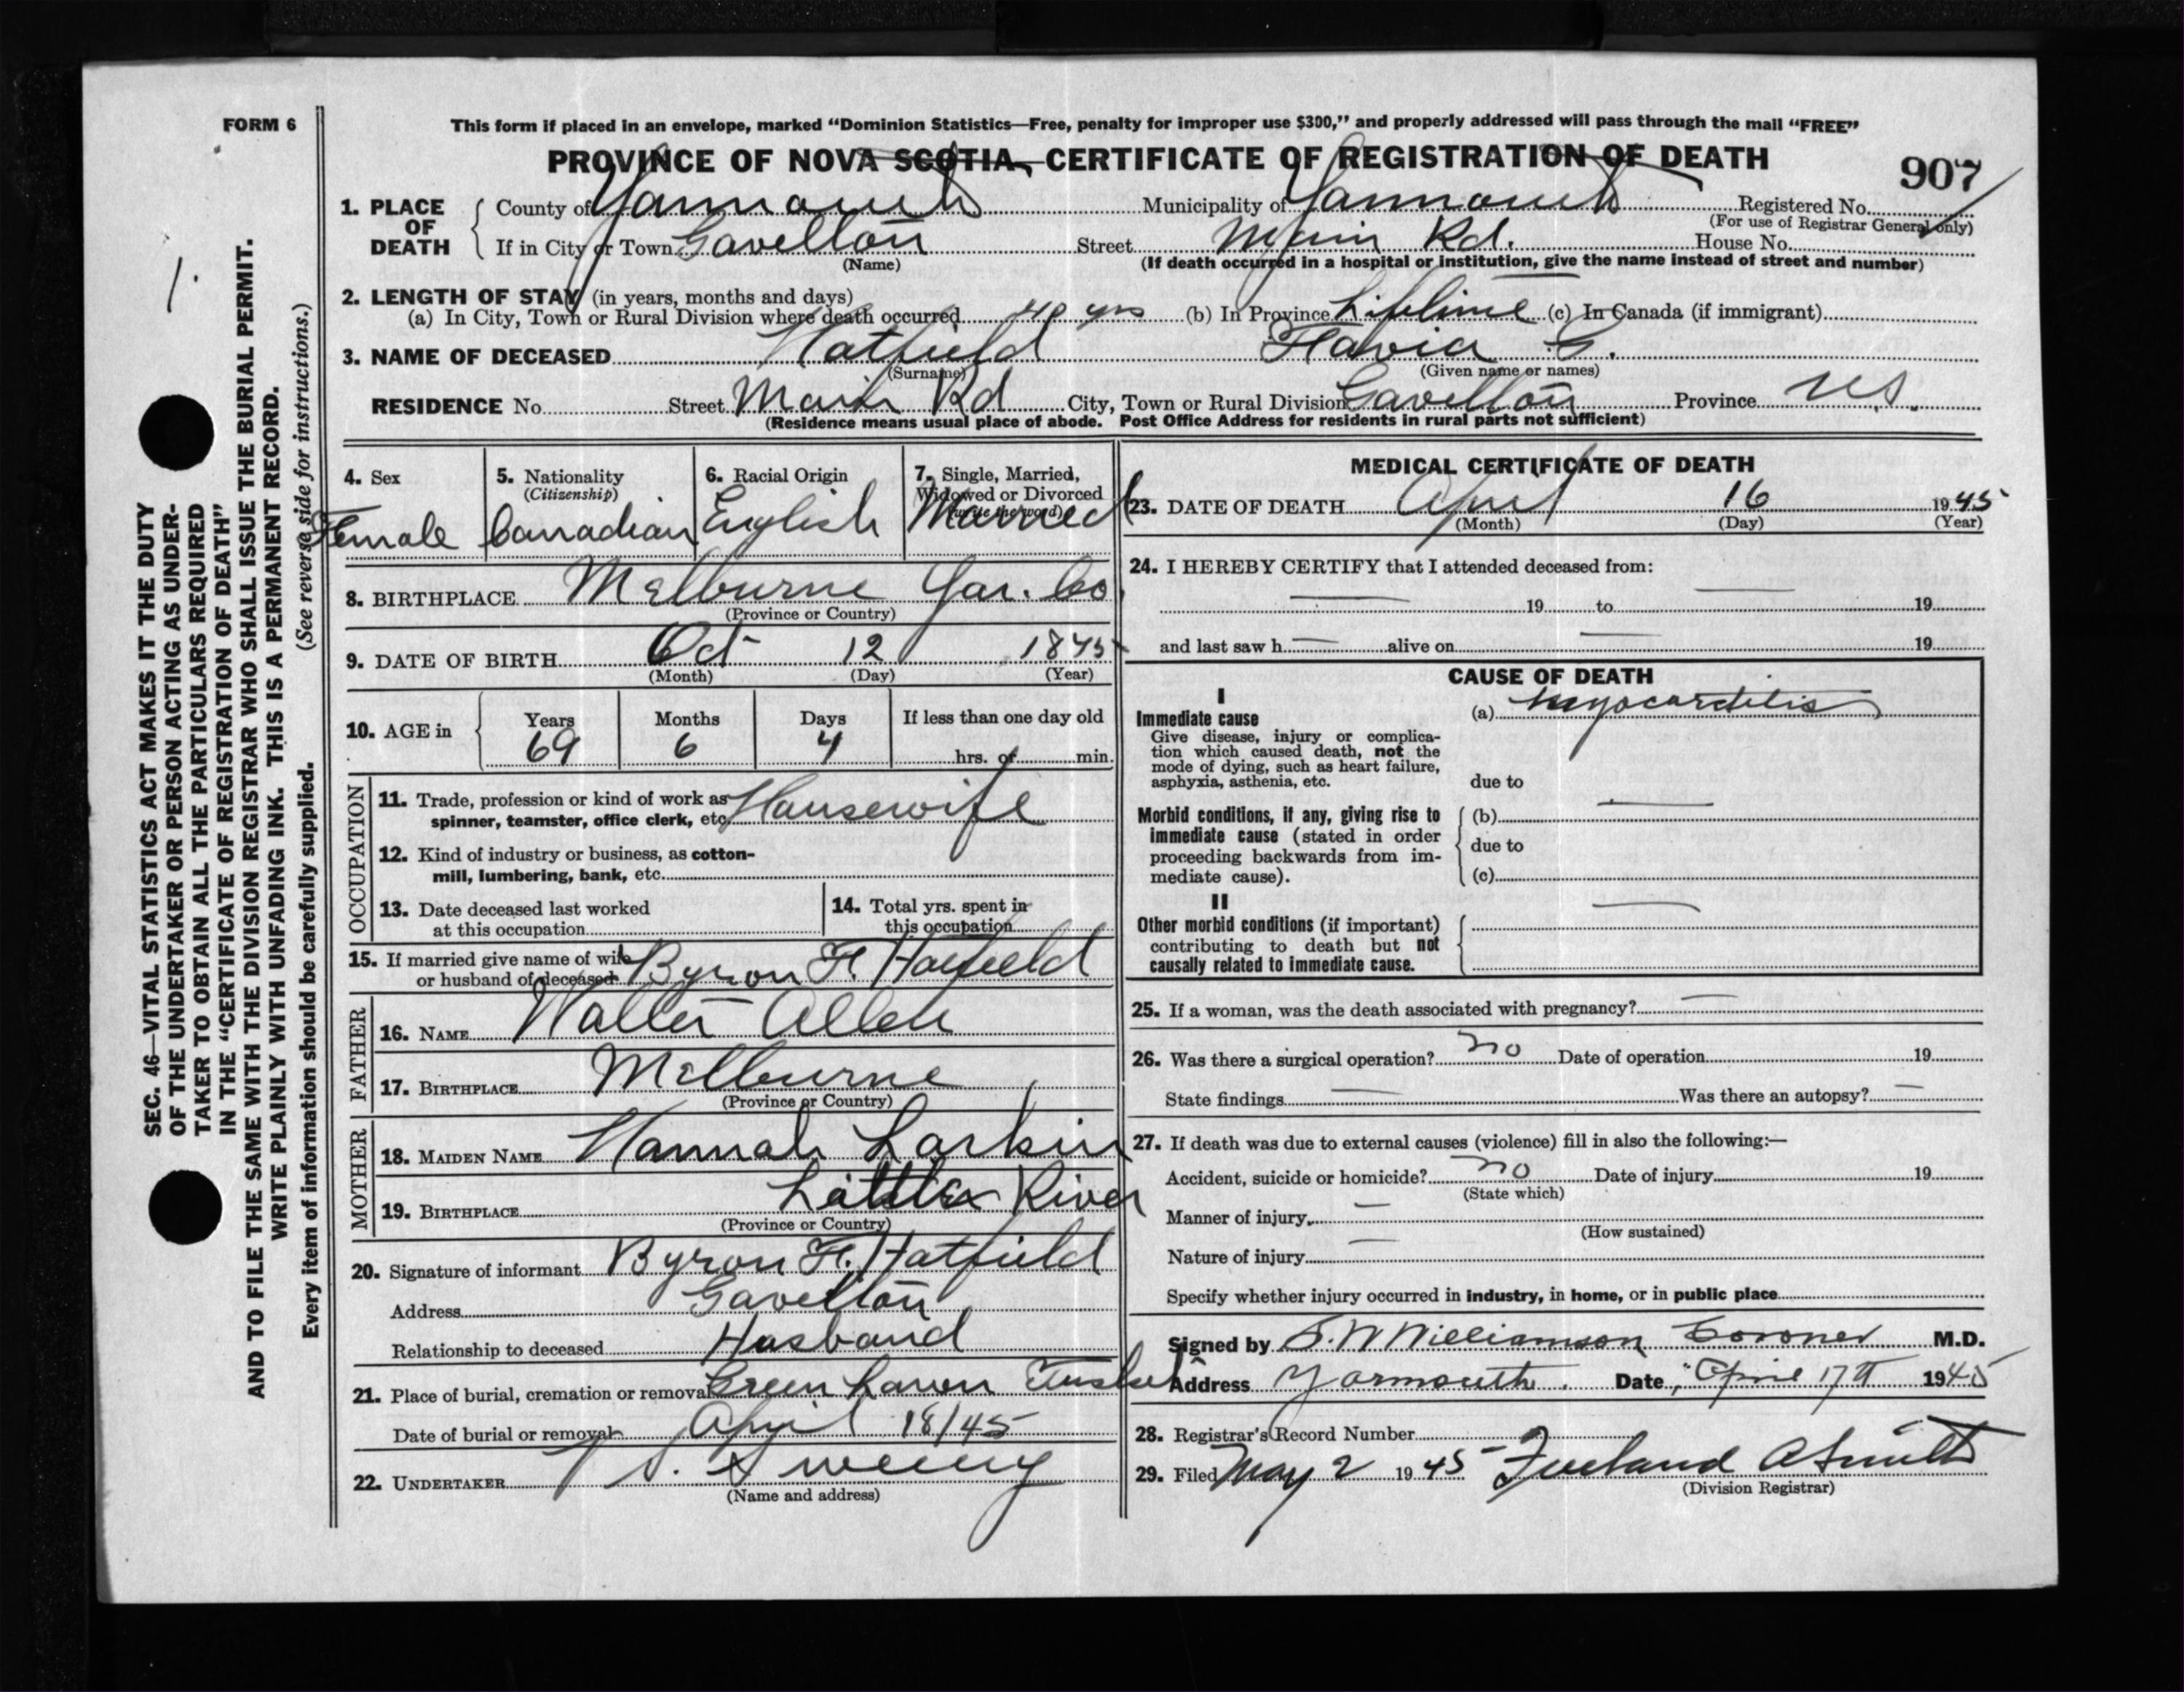 FORM 6
This form if placed in an envelope, marked "Dominion Statistics—Free, penalty for improper use $300," and properly addressed will pass through the mail "FREE"
PROVINCE OF NOVA SCOTIA, CERTIFICATE OF REGISTRATION OF DEATH
907
1. PLACE OF DEATH
County of Yarmouth Municipality of Yarmouth Registered No.
(For use of Registrar General only)
If in City or Town Gavelton Street Main Rd. House No.
(Name) (If death occurred in a hospital or institution, give the name instead of street and number)
2. LENGTH OF STAY (in years, months and days)
(a) In City, Town or Rural Division where death occurred 40 yrs (b) In Province Lifetime (c) In Canada (if immigrant)
3. NAME OF DECEASED Hatfield Flavia G.
(Surname) (Given name or names)
RESIDENCE No. Street Main Rd City, Town or Rural Division Gavelton Province N.S.
(Residence means usual place of abode. Post Office Address for residents in rural parts not sufficient)
4. Sex Female
5. Nationality (Citizenship) Canadian
6. Racial Origin English
7. Single, Married, Widowed or Divorced (write the word) Married
8. BIRTHPLACE Melburne Yar. Co.
(Province or Country)
9. DATE OF BIRTH Oct 12 1875
(Month) (Day) (Year)
10. AGE in Years 69 Months 6 Days 4 If less than one day old hrs. or min.
OCCUPATION
11. Trade, profession or kind of work as spinner, teamster, office clerk, etc. Housewife
12. Kind of industry or business, as cotton-mill, lumbering, bank, etc.
13. Date deceased last worked at this occupation
14. Total yrs. spent in this occupation
15. If married give name of wife or husband of deceased Byron F. Hatfield
FATHER
16. NAME Walter Allen
17. BIRTHPLACE Melburne
(Province or Country)
MOTHER
18. MAIDEN NAME Hannah Larkin
19. BIRTHPLACE Little River
(Province or Country)
20. Signature of informant Byron F. Hatfield
Address Gavelton
Relationship to deceased Husband
21. Place of burial, cremation or removal Green Lawn Tusket
Date of burial or removal April 18/45
22. UNDERTAKER V S. Sweeny
(Name and address)
MEDICAL CERTIFICATE OF DEATH
23. DATE OF DEATH April 16 1945
(Month) (Day) (Year)
24. I HEREBY CERTIFY that I attended deceased from:
— 19 to — 19
and last saw h — alive on — 19
CAUSE OF DEATH
I
Immediate cause
Give disease, injury or complica-
tion which caused death, not the
mode of dying, such as heart failure,
asphyxia, asthenia, etc.
(a) Myocarditis
due to
Morbid conditions, if any, giving rise to
immediate cause (stated in order
proceeding backwards from im-
mediate cause).
(b) —
due to
(c)
II
Other morbid conditions (if important)
contributing to death but not
causally related to immediate cause.
—
25. If a woman, was the death associated with pregnancy? —
26. Was there a surgical operation? no Date of operation 19
State findings — Was there an autopsy? —
27. If death was due to external causes (violence) fill in also the following:—
Accident, suicide or homicide? no Date of injury 19
(State which)
Manner of injury —
(How sustained)
Nature of injury —
Specify whether injury occurred in industry, in home, or in public place
Signed by S.W Williamson Coroner M.D.
Address Yarmouth. Date April 17th 1945
28. Registrar's Record Number
29. Filed May 2 1945 Freeland A Smith
(Division Registrar)
1.
SEC. 46—VITAL STATISTICS ACT MAKES IT THE DUTY
OF THE UNDERTAKER OR PERSON ACTING AS UNDER-
TAKER TO OBTAIN ALL THE PARTICULARS REQUIRED
IN THE "CERTIFICATE OF REGISTRATION OF DEATH"
AND TO FILE THE SAME WITH THE DIVISION REGISTRAR WHO SHALL ISSUE THE BURIAL PERMIT.
WRITE PLAINLY WITH UNFADING INK. THIS IS A PERMANENT RECORD.
Every item of information should be carefully supplied. (See reverse side for instructions.)